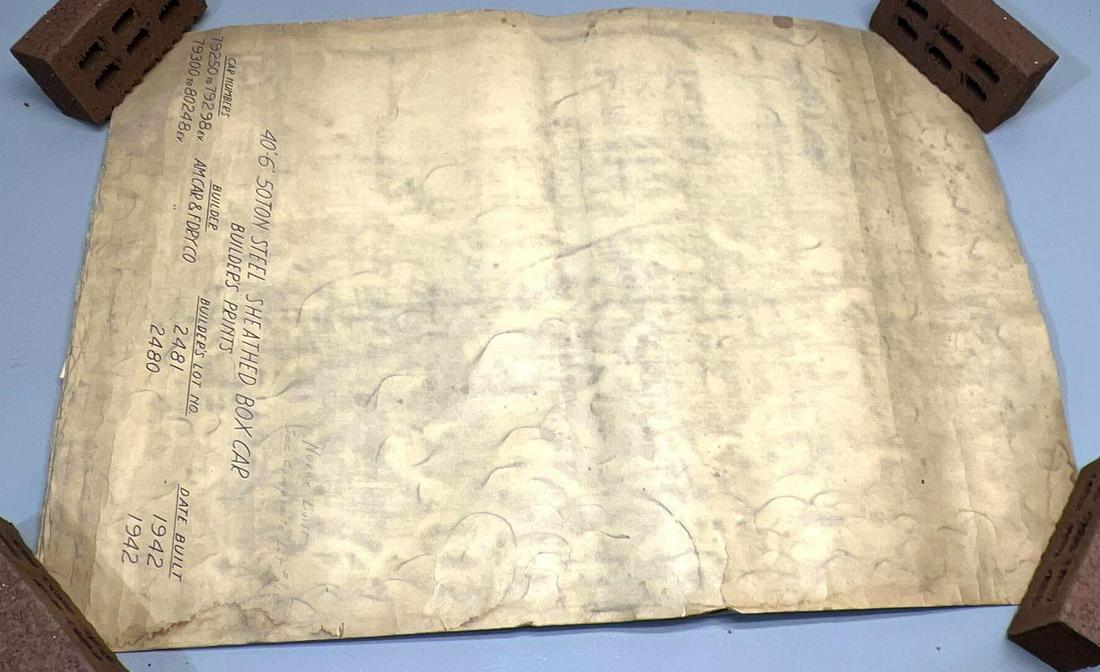 40'-6" 50TON STEEL SHEATHED BOX CAR
BUILDER'S PRINTS
CAR NUMBERS BUILDER BUILDER'S LOT NO. DATE BUILT
79250 TO 79298 EV AM CAR & FDRY CO 2481 1942
79300 TO 80248 EV " 2480 1942